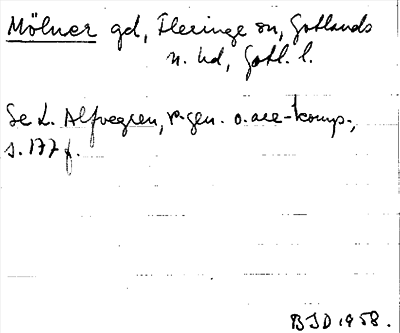 Mölner gd, Fleringe sn, Gotlands
n. hd, Gotl. l.
Se L. Alfvegren, r-gen. o. ace-komp.,
s. 177 f.
BJD 1958.